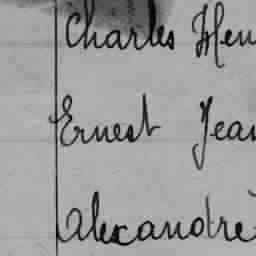 Charles Hen
Ernest Jean
Alexandre